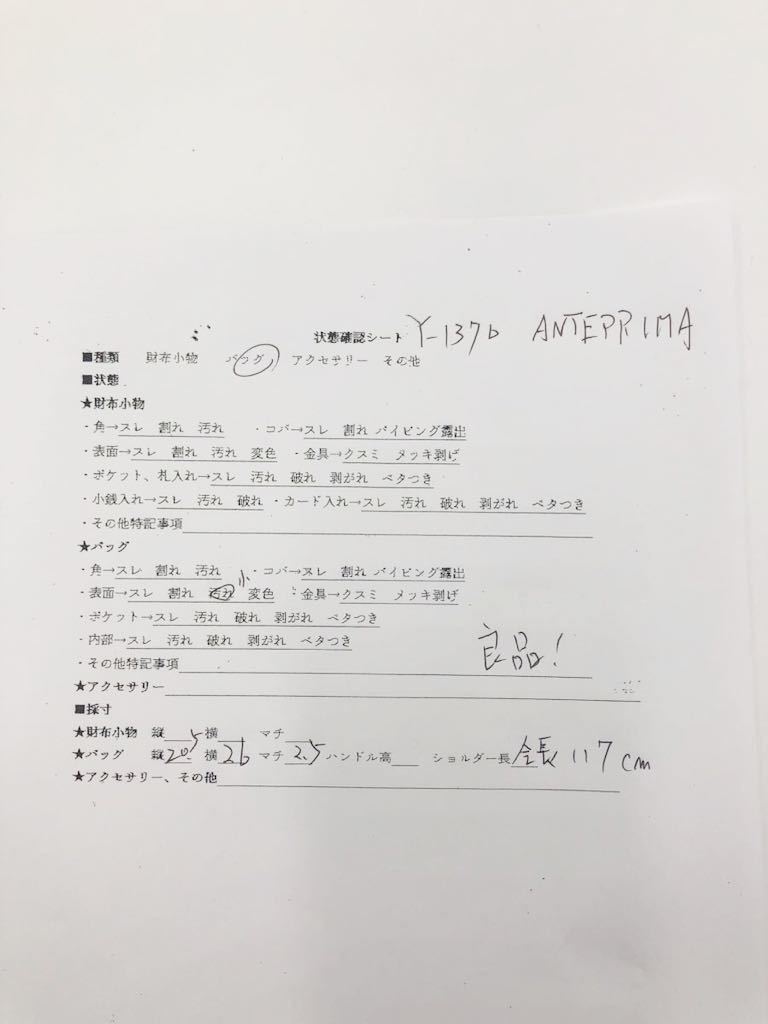 状態確認シート Y-1376 ANTEPRIMA
■種類 財布小物 バッグ アクセサリー その他
■状態
★財布小物
・角→スレ 割れ 汚れ ・コバ→スレ 割れ パイピング露出
・表面→スレ 割れ 汚れ 変色 ・金具→クスミ メッキ剥げ
・ポケット、札入れ→スレ 汚れ 破れ 剥がれ ベタつき
・小銭入れ→スレ 汚れ 破れ ・カード入れ→スレ 汚れ 破れ 剥がれ ベタつき
・その他特記事項
★バッグ
・角→スレ 割れ 汚れ 小 ・コバ→スレ 割れ パイピング露出
・表面→スレ 割れ 汚れ 変色 ・金具→クスミ メッキ剥げ
・ポケット→スレ 汚れ 破れ 剥がれ ベタつき
・内部→スレ 汚れ 破れ 剥がれ ベタつき
良品!
・その他特記事項
★アクセサリー
■採寸
★財布小物 縦 横 マチ
★バッグ 縦20.5 横26 マチ2.5 ハンドル高 ショルダー長 全長 117cm
★アクセサリー、その他